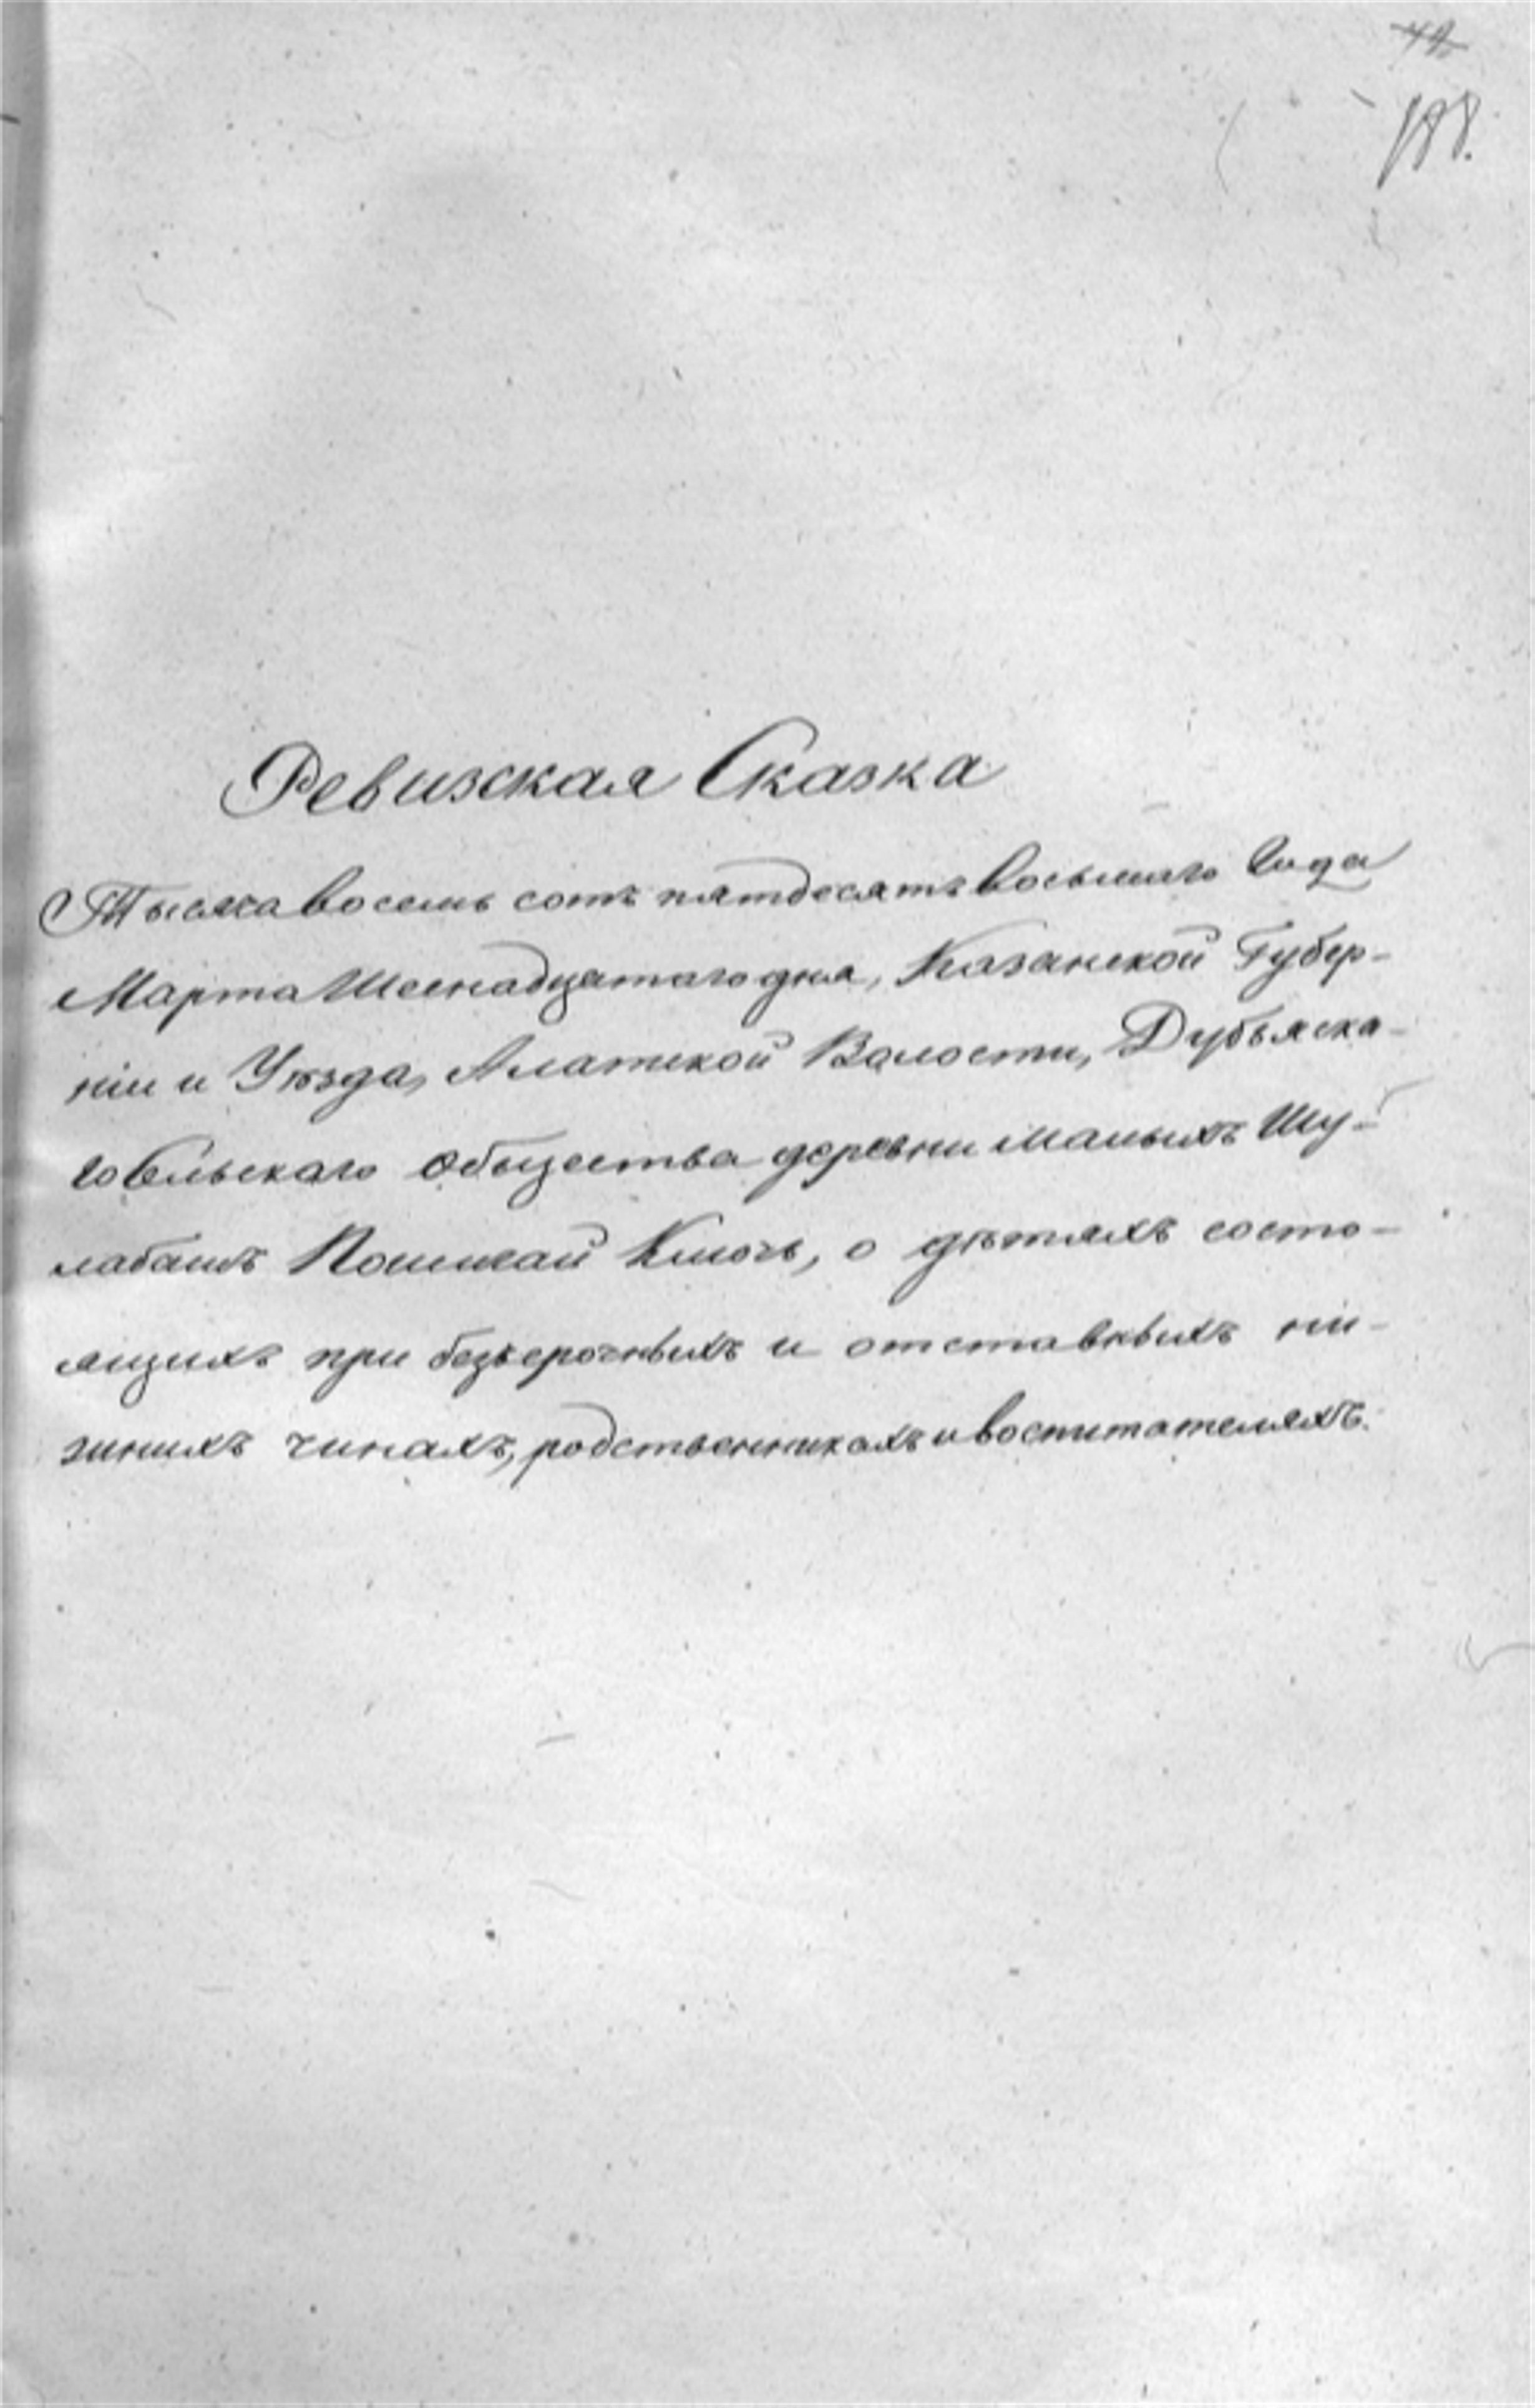 Ревизская Сказка
Тысяча восемь сотъ пятдесятъ восьмаго Года
Марта Шеснадцатаго дня, Казанской Губер-
нии и Уѣзда, Алатской Волости, Дубъяска-
го Сельскаго общества деревни малыхъ Шу-
лабашъ Ключь, о дѣтяхъ состо-
ящихъ при безсрочныхъ и отставныхъ ни-
зшихъ чинахъ, родственникахъ и воспитателяхъ.